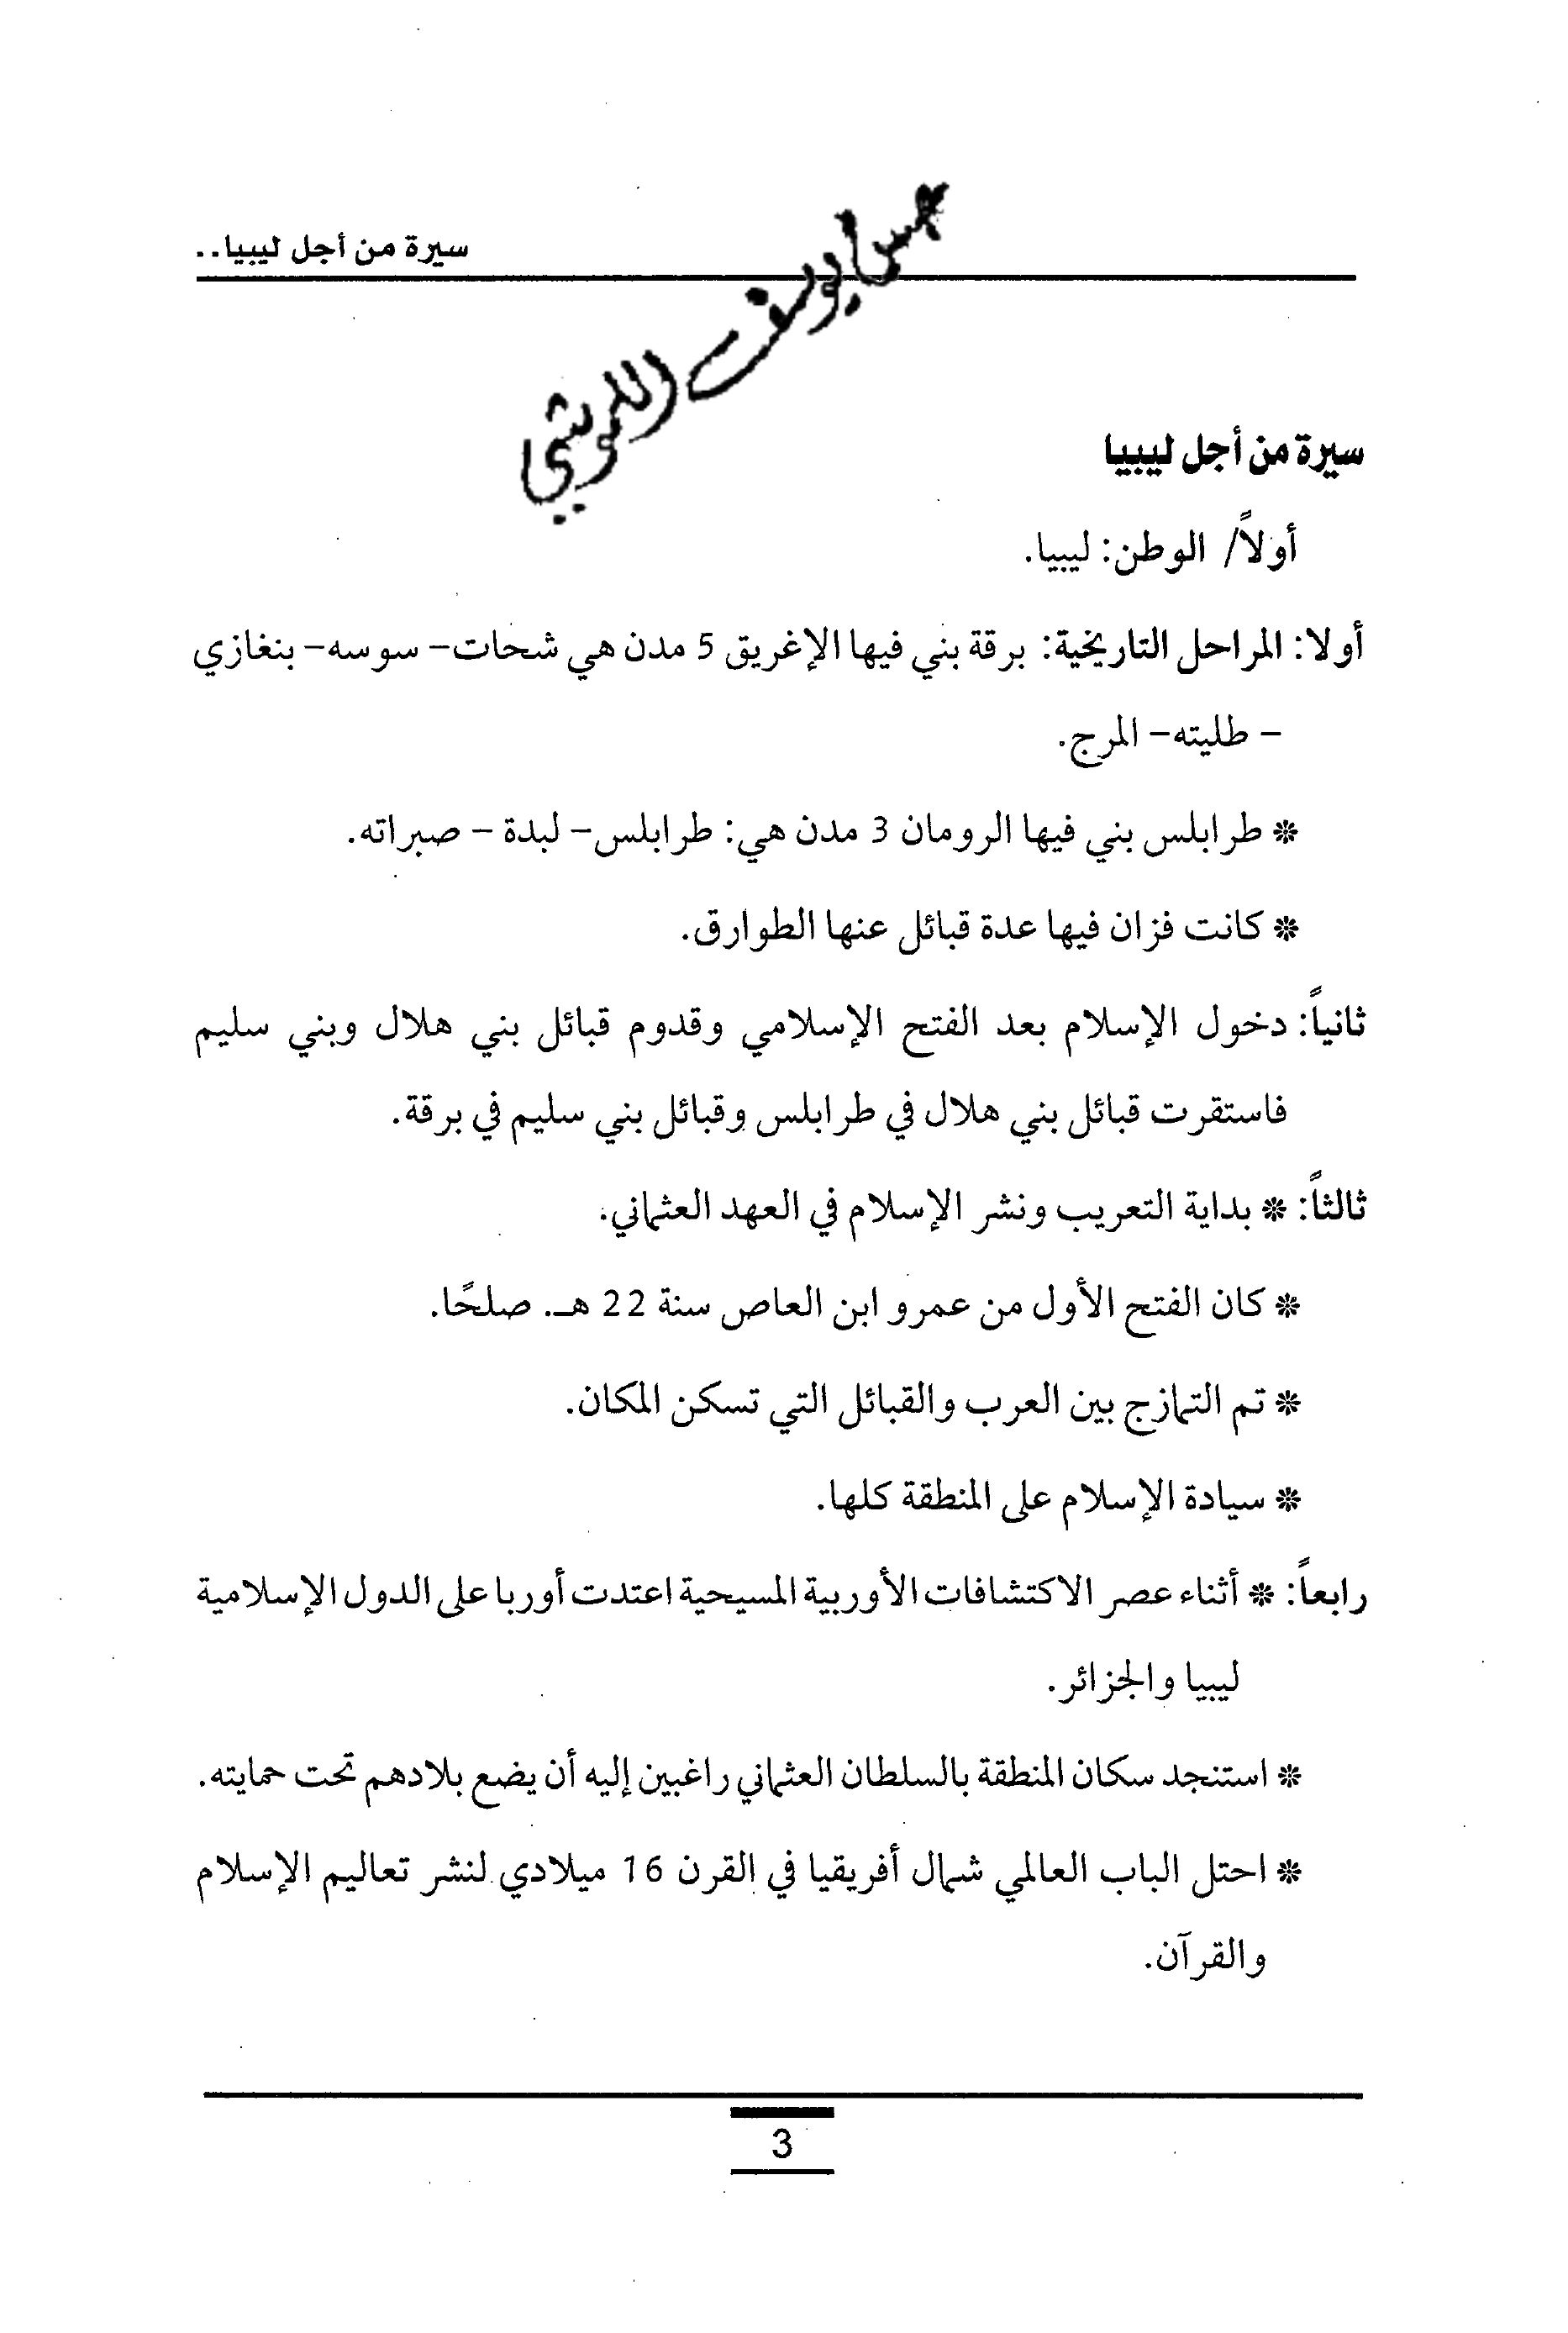 سيرة من أجل ليبيا..
يوسف
سيرة من أجل ليبيا
أولاً/ الوطن: ليبيا.
أولا: المراحل التاريخية: برقة بني فيها الإغريق 5 مدن هي شحات- سوسه- بنغازي
- طليته- المرج.
❊ طرابلس بني فيها الرومان 3 مدن هي: طرابلس- لبدة - صبراته.
❊ كانت فزان فيها عدة قبائل عنها الطوارق.
ثانياً: دخول الإسلام بعد الفتح الإسلامي وقدوم قبائل بني هلال وبني سليم
فاستقرت قبائل بني هلال في طرابلس وقبائل بني سليم في برقة.
ثالثاً: ❊ بداية التعريب ونشر الإسلام في العهد العثماني.
❊ كان الفتح الأول من عمرو ابن العاص سنة 22 هـ. صلحًا.
❊ تم التمازج بين العرب والقبائل التي تسكن المكان.
❊ سيادة الإسلام على المنطقة كلها.
رابعاً: ❊ أثناء عصر الاكتشافات الأوربية المسيحية اعتدت أوربا على الدول الإسلامية
ليبيا والجزائر.
❊ استنجد سكان المنطقة بالسلطان العثماني راغبين إليه أن يضع بلادهم تحت حمايته.
❊ احتل الباب العالمي شمال أفريقيا في القرن 16 ميلادي لنشر تعاليم الإسلام
والقرآن.
3